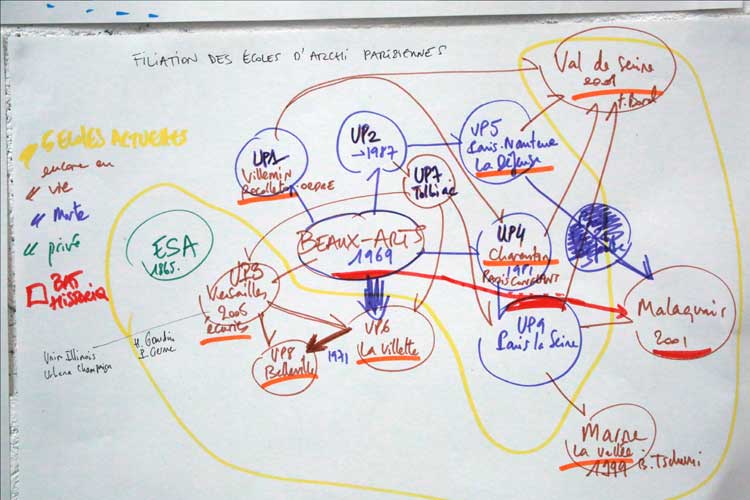 FILIATION DES ÉCOLES D'ARCHI PARISIENNES
ECOLES ACTUELLES
encore en
vie
Morte
privé
BAT
HISTORIQ
ESA
1865.
UP1
Villemin
ORDRE
UP2
→1987
UP7
Tolbiac
UP5
Paris. Nanterre
La Défense
Val de Seine
2001
F. Borel
BEAUX-ARTS
1969
UP4
Charenton
UP3
Versailles
2005
écuries
H. Gaudin
Univ Illinois
Urbana Champaign
UP8
Belleville
1971
UP6
La Villette
UP9
Paris la Seine
Malaquais
2001
Marne
La Vallée
1999 B. Tschumi